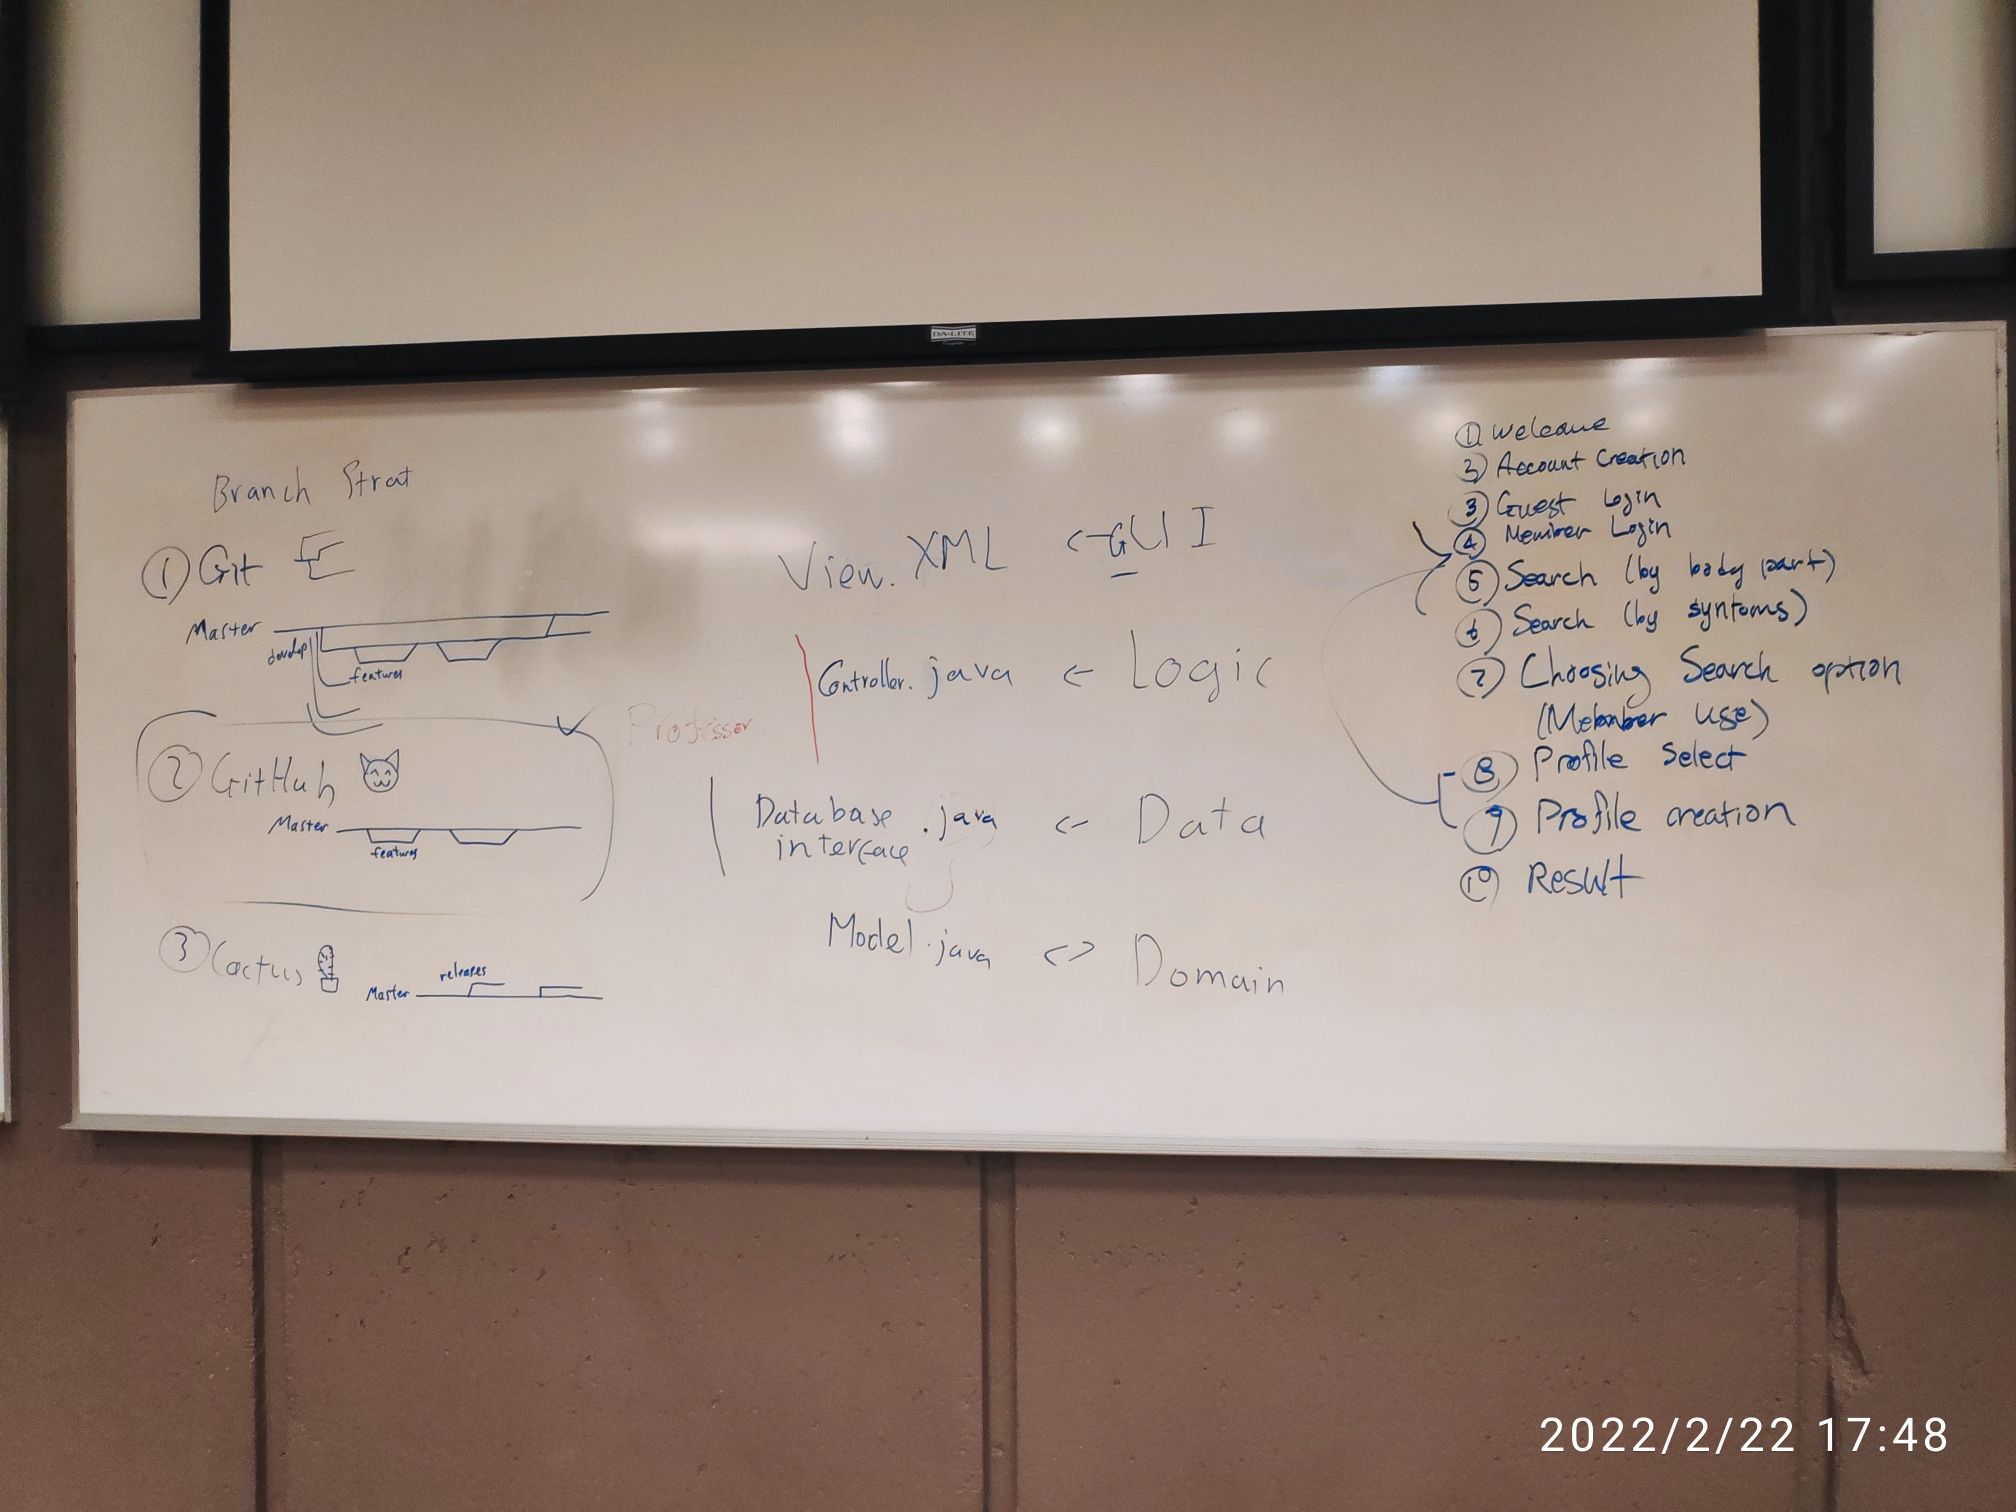 DA-LITE
Branch Strat
① Git
Master
develop
features
② GitHub
Master
features
③ Cactus
releases
Master
Professor
View. XML <- GUI
Controller. java <- Logic
Database
interface .java <- Data
Model.java <> Domain
① Welcome
2) Account Creation
③ Guest Login
④ Member Login
⑤ Search (by body part)
⑥ Search (by syntoms)
⑦ Choosing Search option
(Member use)
⑧ Profile Select
⑨ Profile creation
⑩ Result
2022/2/22 17:48